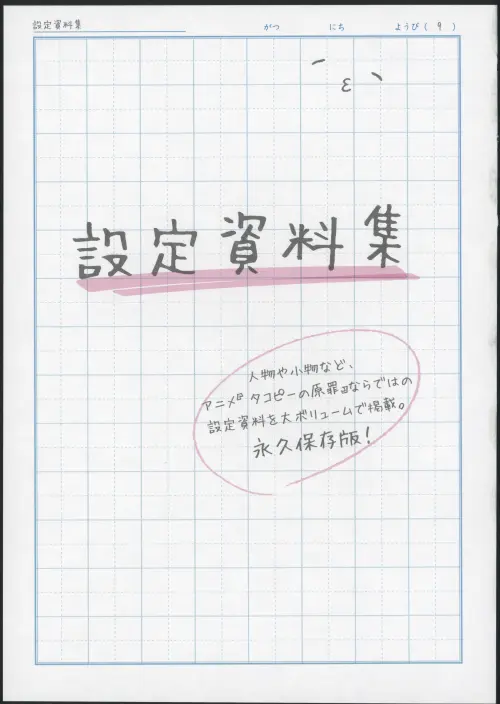 設定資料集
がつ にち ようび( 9 )
設定資料集
人物や小物など、
アニメ『タコピーの原罪』ならではの
設定資料を大ボリュームで掲載。
永久保存版!